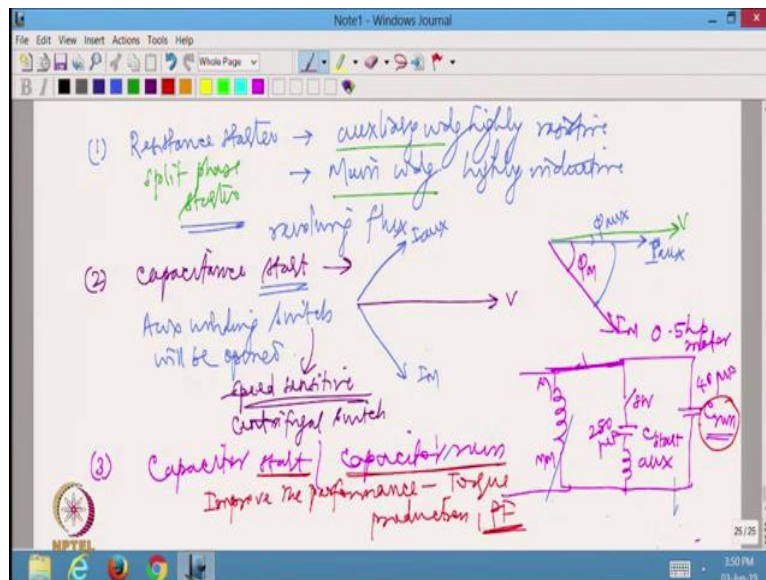 Note1 - Windows Journal
File Edit View Insert Actions Tools Help
Whole Page
B I
(1) Resistance starter → auxiliary wdg highly resistive
Split phase starter → Main wdg highly inductive
revolving flux
Iaux
φaux V
Iaux
φM
IM
(2) Capacitance start → V
IM
Aux winding switch
will be opened
speed sensitive
Centrifugal switch
0.5hp
motor
M
SW
40 μF
Crun
250
μF
Cstart
aux
(3) Capacitor start / Capacitor run
Improve the performance - Torque
production, PF
NPTEL
25/25
3:50 PM